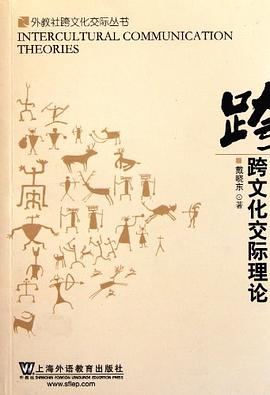 外教社跨文化交际丛书
INTERCULTURAL COMMUNICATION
THEORIES
跨
跨文化交际理论
戴晓东 著
外教社
上海外语教育出版社
SHANGHAI FOREIGN LANGUAGE EDUCATION PRESS
www.sflep.com